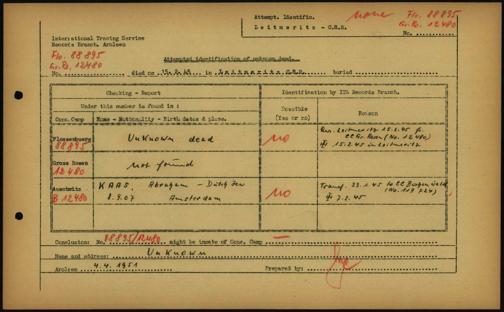 Attempt. Identific. none Flo. 88895
Leitmeritz - C.S.R. Gr.R. 12480
No.
International Tracing Service
Records Branch, Arolsen
Flo. 88895
Gr.R. 12480
Attempted identification of unknown dead.
No. died on in Leitmeritz C.S.R. buried
Checking - Report
Identification by ITS Records Branch.
Under this number is found in :
Possible
(Yes or no)
Reason
Conc. Camp Name - Nationality - Birth dates & place.
Flossenburg
88895
Unknown dead
no
15.2.45 in Leitmeritz
Gross Rosen
12480
not found
Auschwitz
B 12480
KAAS, Abraham - Dutch Jew
8.9.07 Amsterdam
no
Transf. 23.1.45 to CC Buchenwald
7.2.45
Conclusion: No. 88895/12480 might be inmate of Conc. Camp —
Name and address: Unknown
Arolsen 4.4.1951 Prepared by: